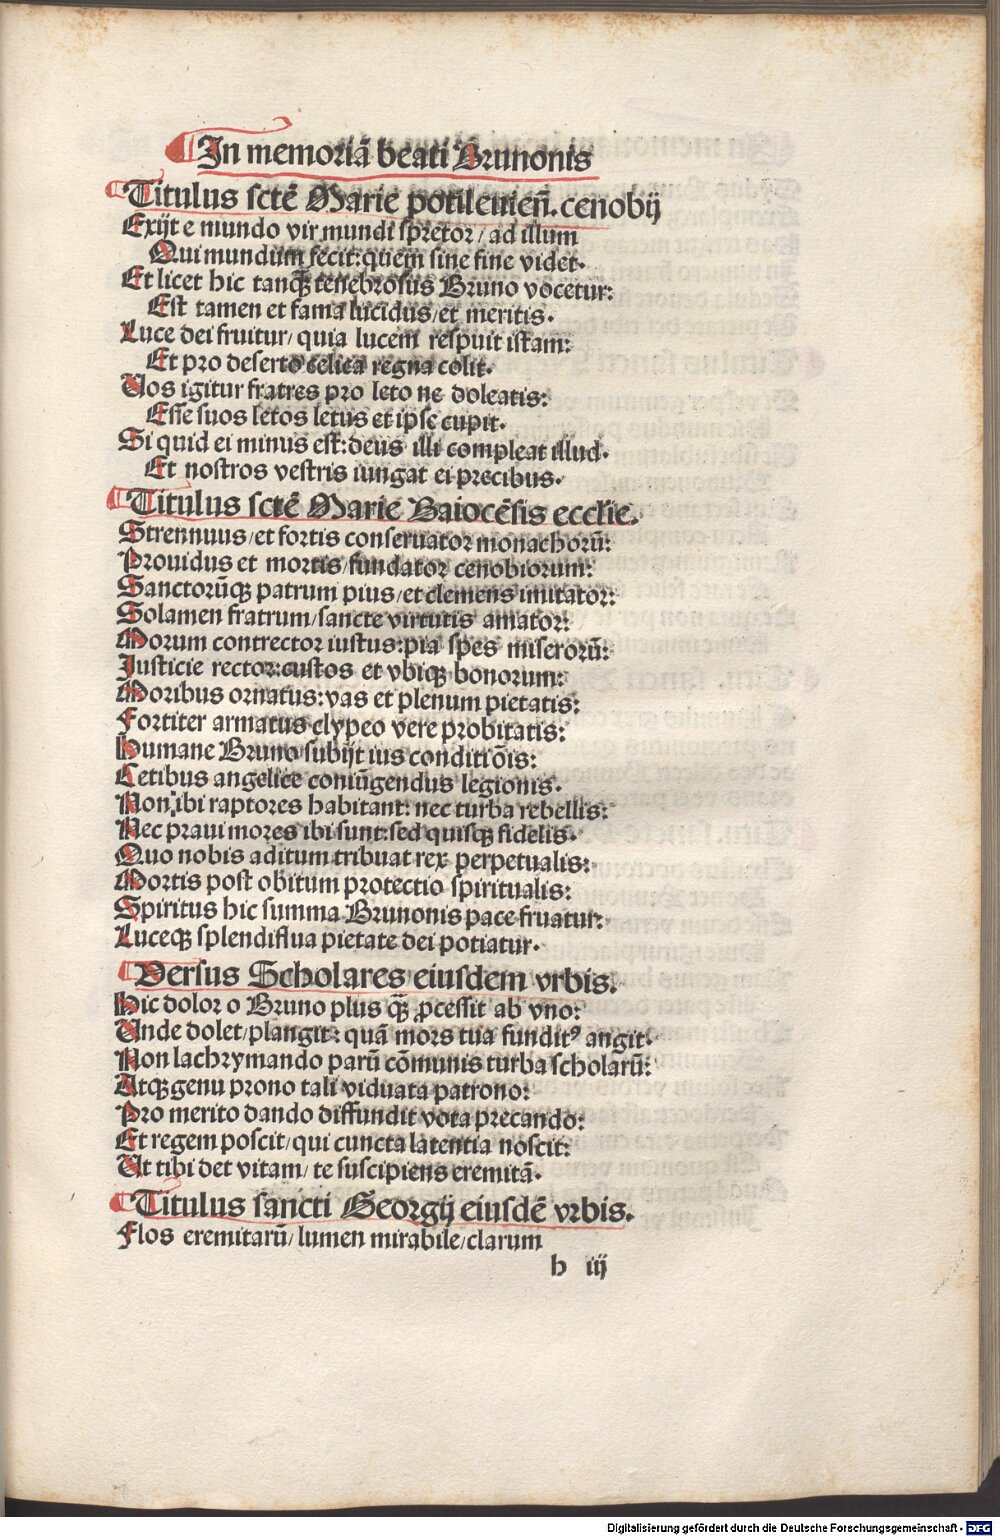 In memoriā beati Brunonis
Titulus sctē Marie potileuieñ. cenobij
Exijt e mundo vir mundi spretor/ ad illum
Qui mundum fecit: quem sine fine videt.
Et licet hic tanqꝫ tenebrosus Bruno vocetur:
Est tamen et fama lucidus/ et meritis.
Luce dei fruitur/ quia lucem respuit istam:
Et pro deserto celica regna colit.
Uos igitur fratres pro leto ne doleatis:
Esse suos letos letus et ipse cupit.
Si quid ei minus est: deus illi compleat illud.
Et nostros vestris iungat ei precibus.
Titulus sctē Marie Baiocēsis ecclie.
Strennuus/ et fortis conseruator monachorū:
Prouidus et mortis/ fundator cenobiorum:
Sanctorūqꝫ patrum pius/ et clemens imitator:
Solamen fratrum/ sancte virtutis amator:
Morum contrector iustus: pia spes miserorū:
Justicie rector: custos et vbiqꝫ bonorum:
Moribus ornatus: vas et plenum pietatis:
Fortiter armatus clypeo vere probitatis:
Humane Bruno subijt ius conditiōis:
Cetibus angelice coniūgendus legionis.
Non ibi raptores habitant: nec turba rebellis:
Nec praui mores ibi sunt: sed quisqꝫ fidelis.
Quo nobis aditum tribuat rex perpetualis:
Mortis post obitum protectio spiritualis:
Spiritus hic summa Brunonis pace fruatur:
Luceqꝫ splendiflua pietate dei potiatur.
Versus Scholares/ eiusdem vrbis.
Hic dolor o Bruno plus qꝫ̄ ꝓcessit ab vno:
Unde dolet/ plangit: quā mors tua fundit⁹ angit.
Non lachrymando parū cōmunis turba scholarū:
Atqꝫ genu prono tali viduata patrono:
Pro merito dando diffundit vota precando:
Et regem poscit/ qui cuncta latentia noscit:
Ut tibi det vitam/ te suscipiens eremitā.
Titulus sancti Georgij eiusdē vrbis.
Flos eremitarū/ lumen mirabile/ clarum
h iij
Digitalisierung gefördert durch die Deutsche Forschungsgemeinschaft - DFG